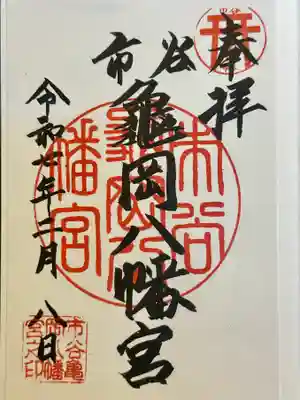 奉拝
市谷
龜岡八幡宮
令和廿年二月八日
市谷
八幡宮
市谷亀
岡八幡
宮之印